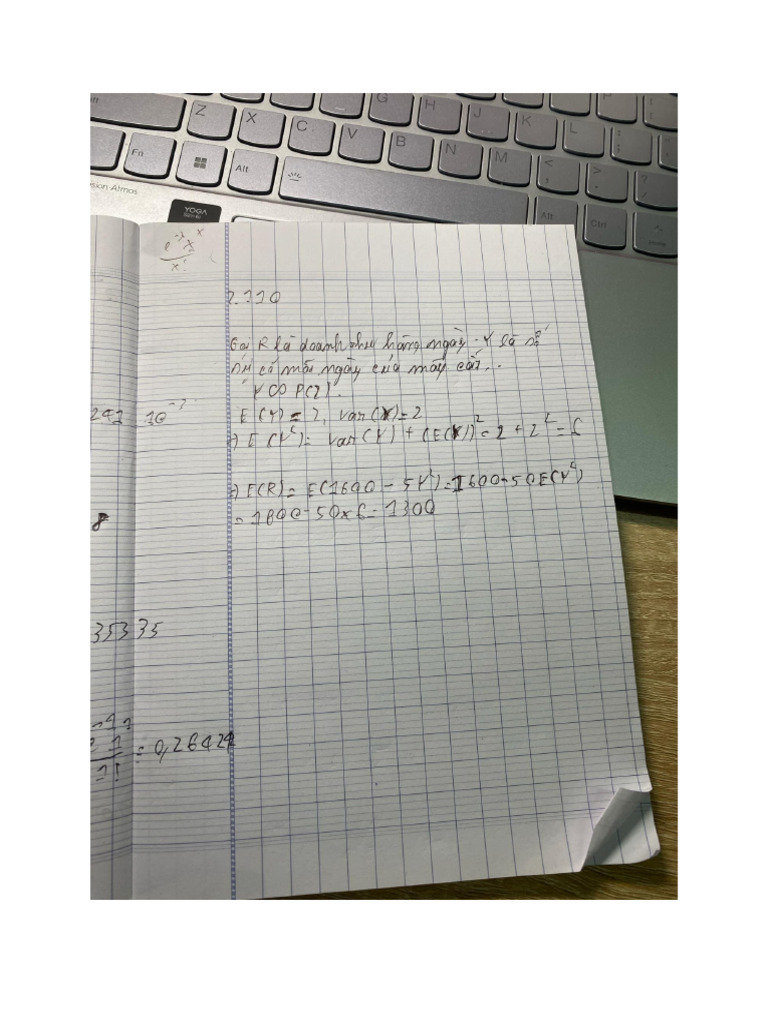 Z X C V B N M G H J K L P
Fn Alt < >
Alt Ctrl
sion Atmos
YOGA
e^-λ λ^x
x!
2.110
Gọi R là doanh thu hàng ngày. Y là số
sự cố mỗi ngày của máy cắt.
Y ∞ P(2).
E(Y) = 2, van(X) = 2
=) E(Y²) = van(Y) + (E(X))² = 2 + 2² = 6
=) E(R) = E(1600 - 5Y²) = 1600 - 50E(Y²)
= 1600 - 50 x 6 = 1300
10
35335
1! = 0,26424